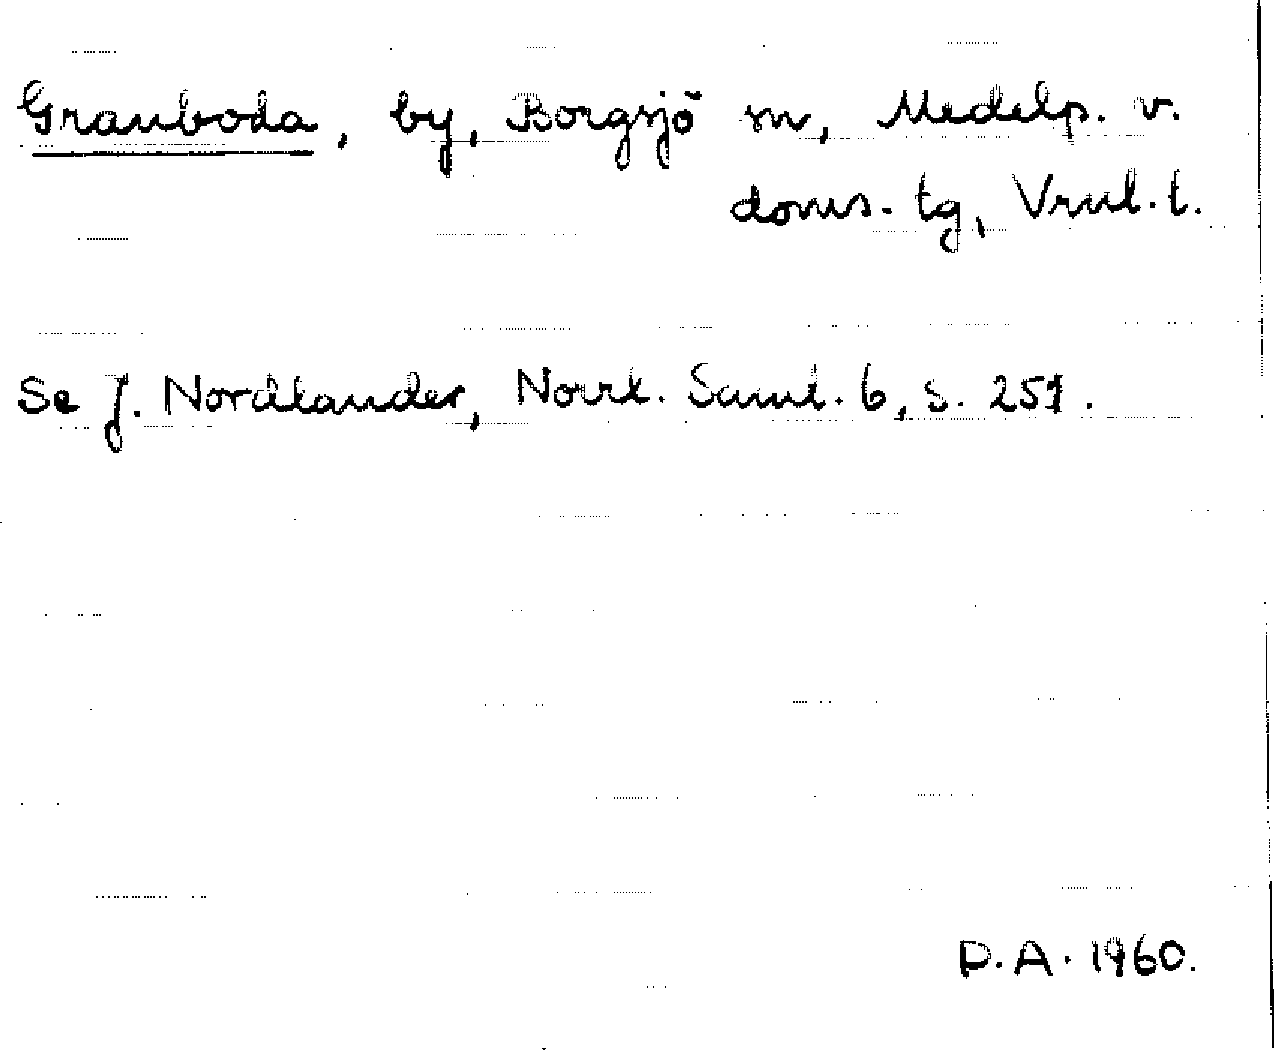 Granboda, by, Borgsjö sn, Medelp. v.
doms. tg, Vnl. t.
Se J. Nordlander, Norrl. Saml. 6, s. 251.
D.A. 1960.